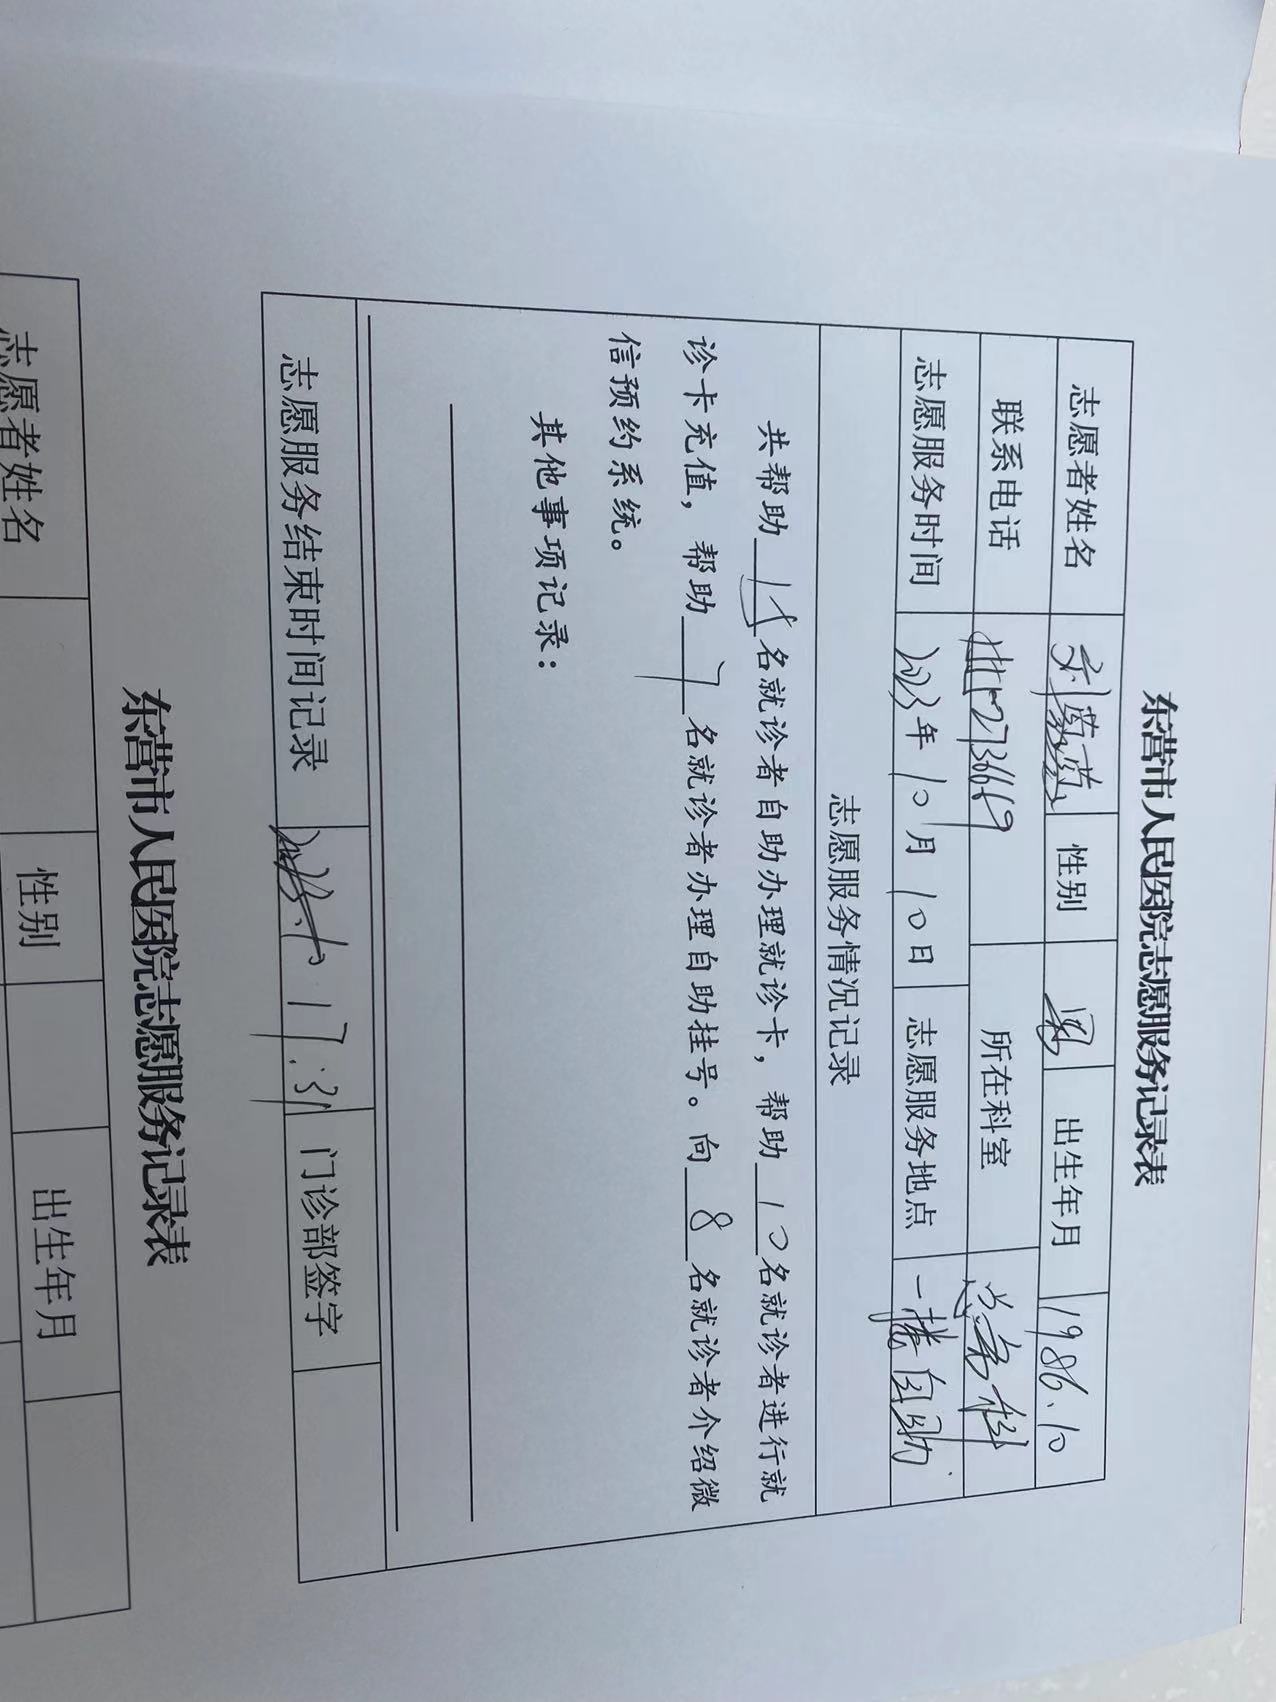 东营市人民医院志愿服务记录表
志愿者姓名 刘 性别 男 出生年月 1986.10
联系电话 所在科室
志愿服务时间 2023年10月10日 志愿服务地点 一楼自助
志愿服务情况记录
共帮助15名就诊者自助办理就诊卡，帮助10名就诊者进行就
诊卡充值，帮助7名就诊者办理自助挂号。向8名就诊者介绍微
信预约系统。
其他事项记录：
志愿服务结束时间记录 17:31 门诊部签字
东营市人民医院志愿服务记录表
志愿者姓名 性别 出生年月